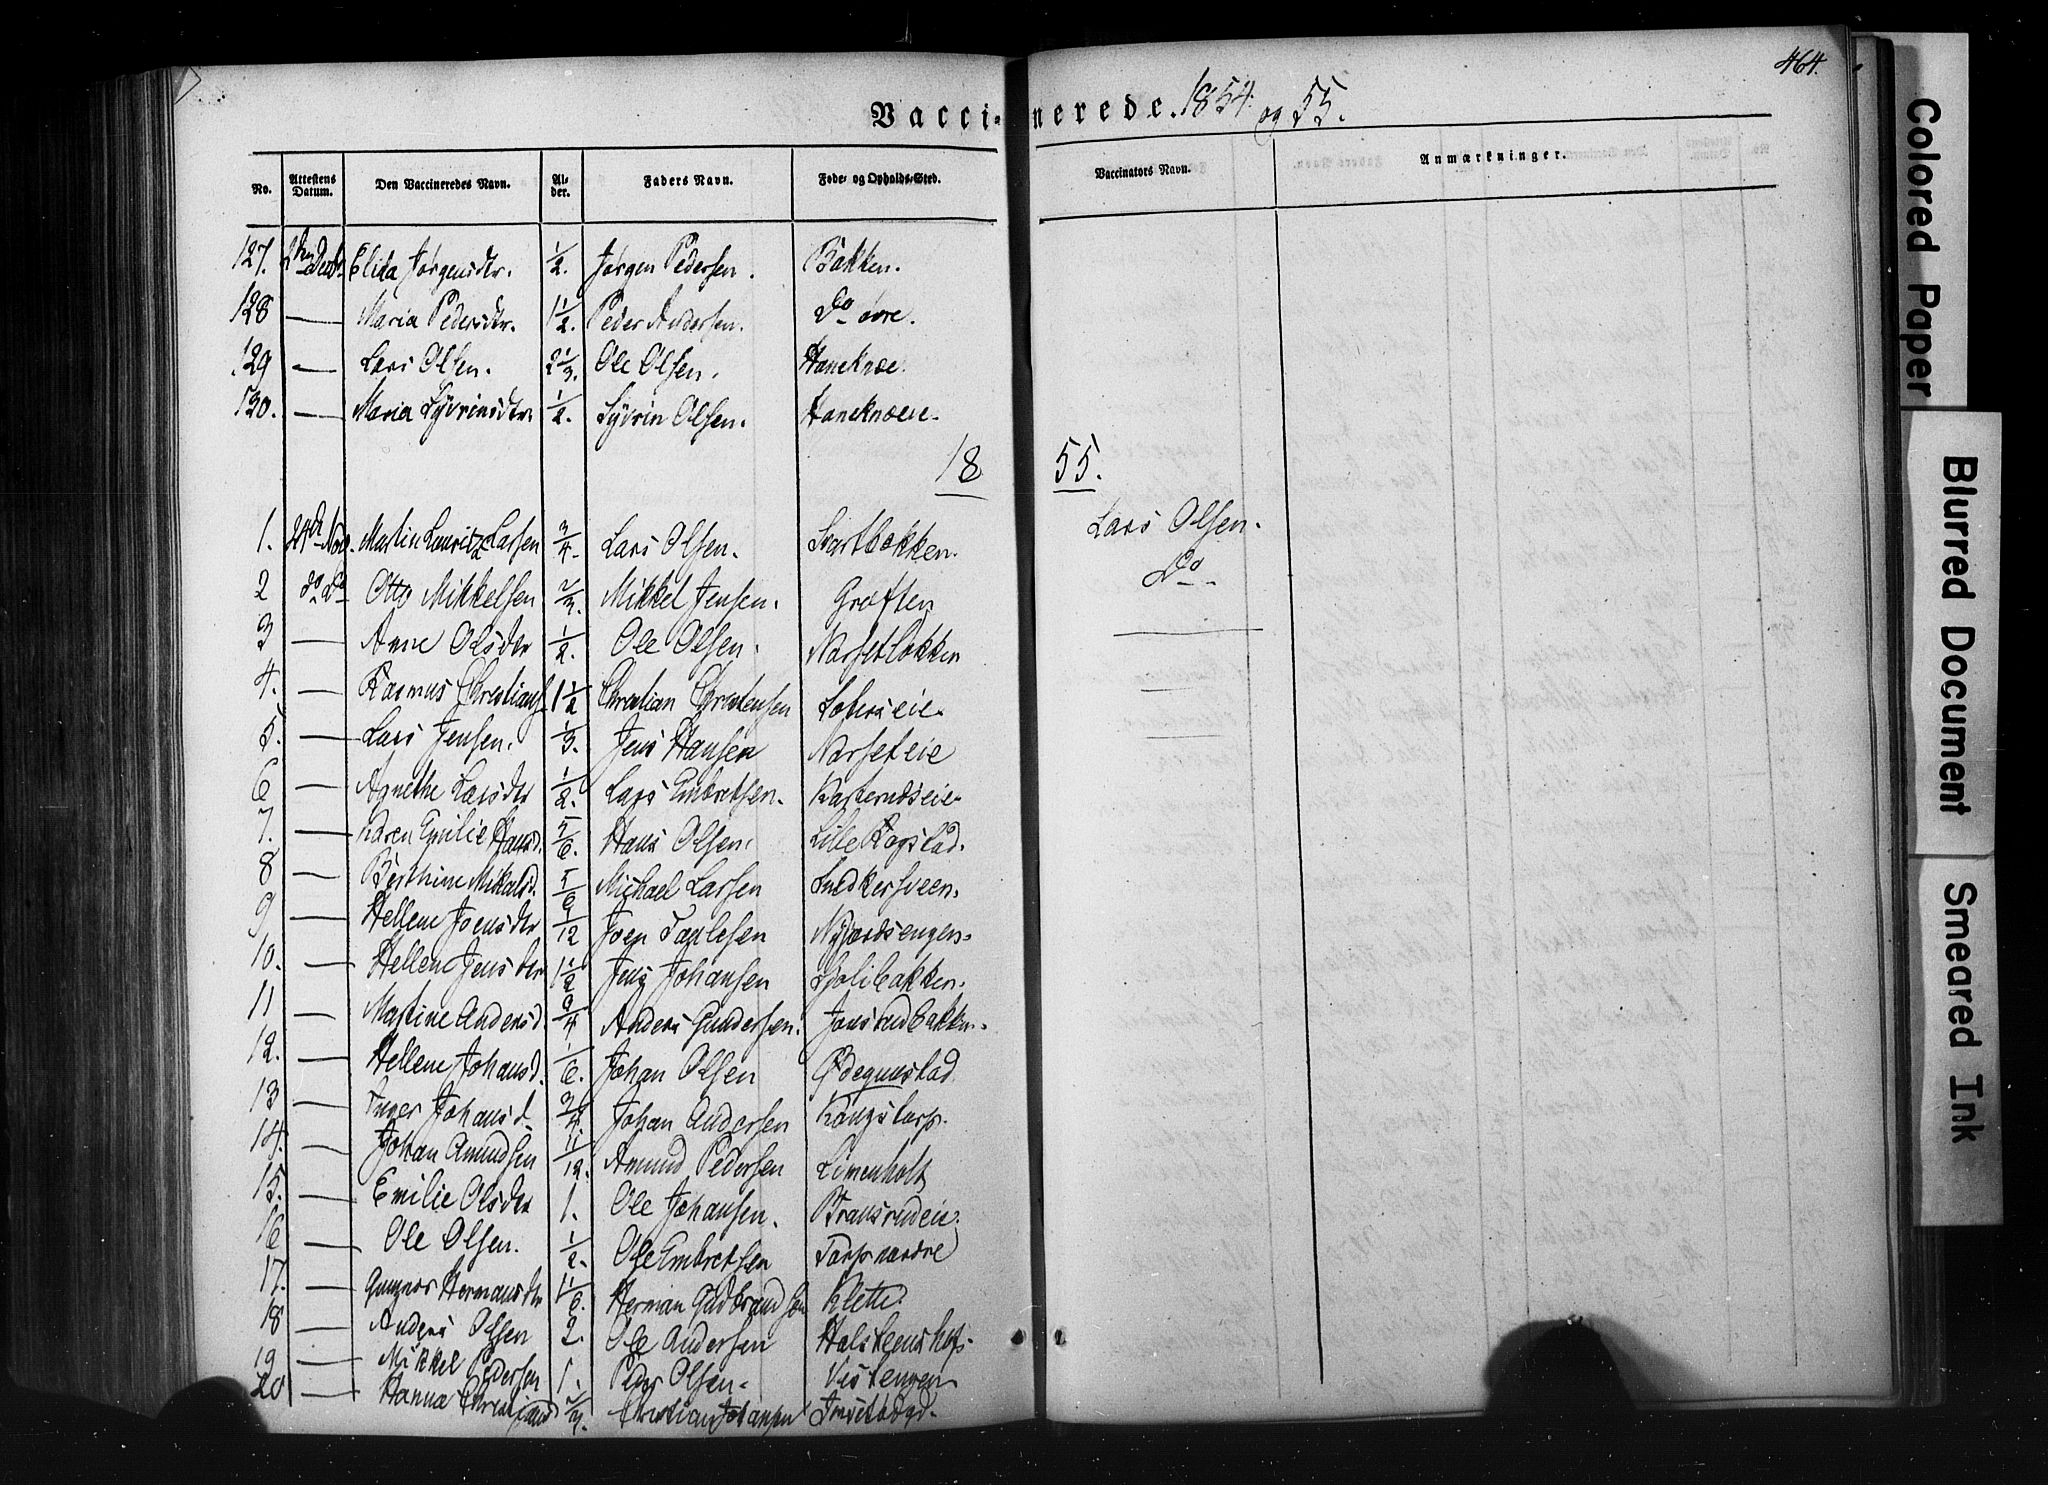 464.
Vaccinerede. 1854. og 55.
No. Attestens Datum. Den Vaccineredes Navn. Alder. Faders Navn. Føde- og Opholds-Sted. Vaccinators Navn. Anmærkninger.
127. Elida Jørgensdtr. 1/2. Jørgen Pedersen. Bakken.
128 — Maria Pedersdtr. 1 1/2. Peder Andersen. Do øvre.
129 — Lars Olsen. 2 1/3. Ole Olsen. Haneknæ.
130. — Maria Syvrinsdtr. 1/2. Syvrin Olsen. Haneknæeie.
1855.
1. 24de Nov. Martin Lauritz Larsen 3/4. Lars Olsen. Svartbækken. Lars Olsen.
2 do Do Otto Mikkelsen 2/3. Mikkel Jensen. Grøften Do
3 — Anne Olsdtr 1/2. Ole Olsen. Narsetbakken —
4. — Rasmus Christians. 1 1/2 Christian Christensen —
5. — Lars Jensen. 1/3. Jens Hansen Narseteie —
6 — Agnethe Larsdtr 1/2. Lars Embretsen.
7. — Karen Emilie Hansd. 5/6. Hans Olsen. Lille Rogstad.
8 — Berthine Mikalsd. 5/6 Michael Larsen Snedkersveen.
9 — Hellene Joensdtr 9/12 Joen Paulsen Nygardsengen.
10. — Hellene Jensdtr 1 1/2 Jens Johansen
11 — Martine Andersd 3/4 Anders Gundersen. Jonsrudbakken.
12. — Hellene Johansd. 1/6. Johan Olsen Ødegunstad
13 — Inger Johansd. 3/4 Johan Andersen
14. — Johan Amundsen 11/12. Amund Pedersen Limenholt
15. — Emilie Olsdtr 1. Ole Johansen. Bransrudeie.
16 — Ole Olsen. 1/2. Ole Embretsen Torp nordre
17. — Hermansdtr 1 1/6. Herman Gudbrandsen Klette.
18 — Anders Olsen 2. Ole Andersen Halsteenshof.
19 — Mikkel Pedersen 1. Peder Olsen. Vestengen
20 — Hanna Christiansd 2/3. Christian Johansen
Colored Paper
Blurred Document
Smeared Ink